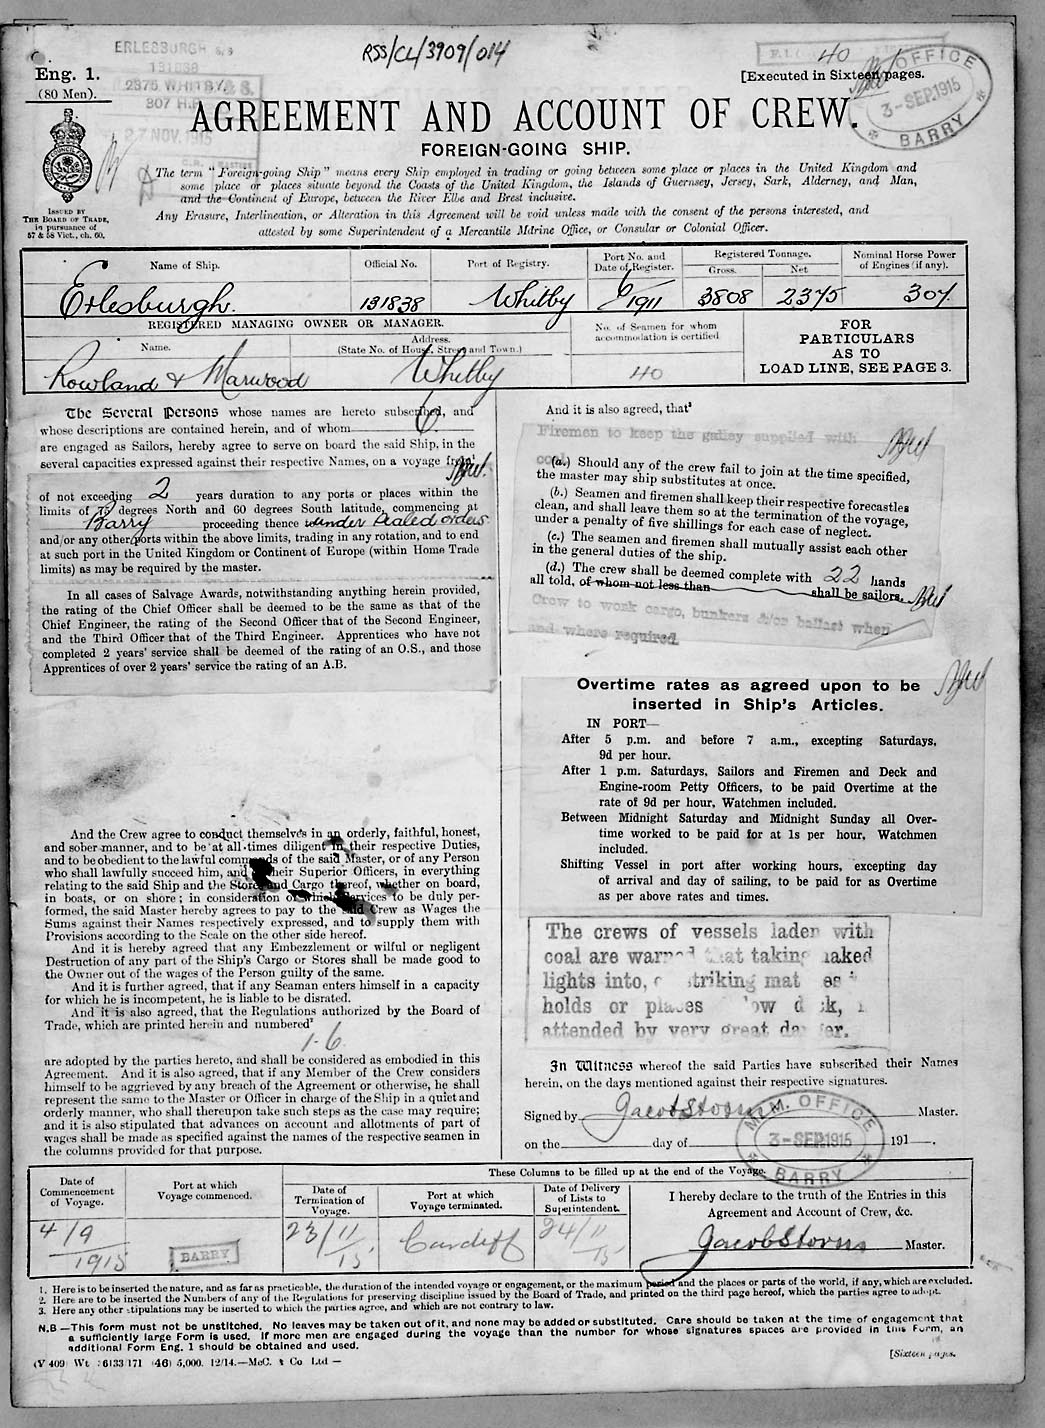 ERLESBURGH S.S
131838
2375 WHITBY.
307 H.P.
27 NOV. 1915
RSS/CL/3909/014
40
Eng. 1.
(80 Men).
[Executed in Sixteen pages.
OFFICE
3-SEP.1915
BARRY
AGREEMENT AND ACCOUNT OF CREW.
FOREIGN-GOING SHIP.
ISSUED BY
THE BOARD OF TRADE,
in pursuance of
57 & 58 Vict., ch. 60.
The term "Foreign-going Ship" means every Ship employed in trading or going between some place or places in the United Kingdom and
some place or places situate beyond the Coasts of the United Kingdom, the Islands of Guernsey, Jersey, Sark, Alderney, and Man,
and the Continent of Europe, between the River Elbe and Brest inclusive.
Any Erasure, Interlineation, or Alteration in this Agreement will be void unless made with the consent of the persons interested, and
attested by some Superintendent of a Mercantile Marine Office, or Consular or Colonial Officer.
Name of Ship. Official No. Port of Registry. Port No. and Date of Register. Registered Tonnage. Gross. Net Nominal Horse Power of Engines (if any).
Erlesburgh. 131838 Whitby 6/1911 3808 2375 307.
REGISTERED MANAGING OWNER OR MANAGER.
Name. Address. (State No. of House, Street and Town.)
No. of Seamen for whom accommodation is certified
FOR
PARTICULARS
AS TO
LOAD LINE, SEE PAGE 3.
Rowland & Marwood Whitby 40
The Several Persons whose names are hereto subscribed, and
whose descriptions are contained herein, and of whom 6
are engaged as Sailors, hereby agree to serve on board the said Ship, in the
several capacities expressed against their respective Names, on a voyage from
of not exceeding 2 years duration to any ports or places within the
limits of 75 degrees North and 60 degrees South latitude, commencing at
Barry proceeding thence under sealed orders
and/or any other ports within the above limits, trading in any rotation, and to end
at such port in the United Kingdom or Continent of Europe (within Home Trade
limits) as may be required by the master.
In all cases of Salvage Awards, notwithstanding anything herein provided,
the rating of the Chief Officer shall be deemed to be the same as that of the
Chief Engineer, the rating of the Second Officer that of the Second Engineer,
and the Third Officer that of the Third Engineer. Apprentices who have not
completed 2 years' service shall be deemed of the rating of an O.S., and those
Apprentices of over 2 years' service the rating of an A.B.
And the Crew agree to conduct themselves in an orderly, faithful, honest,
and sober manner, and to be at all times diligent in their respective Duties,
and to be obedient to the lawful commands of the said Master, or of any Person
who shall lawfully succeed him, and their Superior Officers, in everything
relating to the said Ship and the Stores and Cargo thereof, whether on board,
in boats, or on shore; in consideration of which Services to be duly per-
formed, the said Master hereby agrees to pay to the said Crew as Wages the
Sums against their Names respectively expressed, and to supply them with
Provisions according to the Scale on the other side hereof.
And it is hereby agreed that any Embezzlement or wilful or negligent
Destruction of any part of the Ship's Cargo or Stores shall be made good to
the Owner out of the wages of the Person guilty of the same.
And it is further agreed, that if any Seaman enters himself in a capacity
for which he is incompetent, he is liable to be disrated.
And it is also agreed, that the Regulations authorized by the Board of
Trade, which are printed herein and numbered²
1-6.
are adopted by the parties hereto, and shall be considered as embodied in this
Agreement. And it is also agreed, that if any Member of the Crew considers
himself to be aggrieved by any breach of the Agreement or otherwise, he shall
represent the same to the Master or Officer in charge of the Ship in a quiet and
orderly manner, who shall thereupon take such steps as the case may require;
and it is also stipulated that advances on account and allotments of part of
wages shall be made as specified against the names of the respective seamen in
the columns provided for that purpose.
And it is also agreed, that³
Firemen to keep the galley supplied with
coal
(a.) Should any of the crew fail to join at the time specified,
the master may ship substitutes at once.
(b.) Seamen and firemen shall keep their respective forecastles
clean, and shall leave them so at the termination of the voyage,
under a penalty of five shillings for each case of neglect.
(c.) The seamen and firemen shall mutually assist each other
in the general duties of the ship.
(d.) The crew shall be deemed complete with 22 hands
all told, of whom not less than shall be sailors.
Crew to work cargo, bunkers &/or ballast when
and where required.
Overtime rates as agreed upon to be
inserted in Ship's Articles.
IN PORT—
After 5 p.m. and before 7 a.m., excepting Saturdays,
9d per hour.
After 1 p.m. Saturdays, Sailors and Firemen and Deck and
Engine-room Petty Officers, to be paid Overtime at the
rate of 9d per hour, Watchmen included.
Between Midnight Saturday and Midnight Sunday all Over-
time worked to be paid for at 1s per hour, Watchmen
included.
Shifting Vessel in port after working hours, excepting day
of arrival and day of sailing, to be paid for as Overtime
as per above rates and times.
The crews of vessels laden with
coal are warned that taking naked
lights into, striking matches
holds or places below deck,
attended by very great danger.
In Witness whereof the said Parties have subscribed their Names
herein, on the days mentioned against their respective signatures.
Signed by Jacob Storm Master.
on the day of 191 .
M.M. OFFICE
3-SEP.1915
BARRY
These Columns to be filled up at the end of the Voyage.
Date of Commencement of Voyage. Port at which Voyage commenced. Date of Termination of Voyage. Port at which Voyage terminated. Date of Delivery of Lists to Superintendent.
I hereby declare to the truth of the Entries in this
Agreement and Account of Crew, &c.
4/9/1915 BARRY 23/11/15. Cardiff 24/11/15 Jacob Storm Master.
1. Here is to be inserted the nature, and as far as practicable, the duration of the intended voyage or engagement, or the maximum period and the places or parts of the world, if any, which are excluded.
2. Here are to be inserted the Numbers of any of the Regulations for preserving discipline issued by the Board of Trade, and printed on the third page hereof, which the parties agree to adopt.
3. Here any other stipulations may be inserted to which the parties agree, and which are not contrary to law.
N.B—This form must not be unstitched. No leaves may be taken out of it, and none may be added or substituted. Care should be taken at the time of engagement that
a sufficiently large Form is used. If more men are engaged during the voyage than the number for whose signatures spaces are provided in this Form, an
additional Form Eng. 1 should be obtained and used.
(V 409) Wt 6133/171 (46) 5,000. 12/14.—McC. & Co Ltd—
[Sixteen pages.